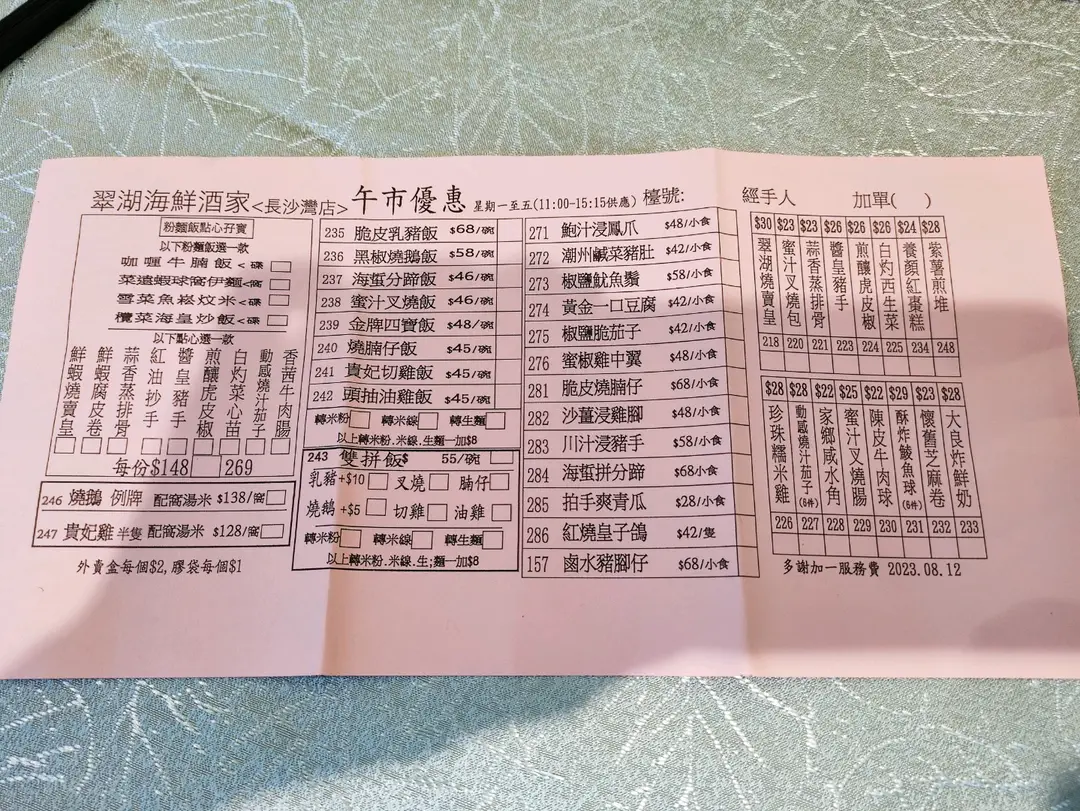 翠湖海鮮酒家<長沙灣店> 午市優惠 星期一至五(11:00-15:15供應) 檯號: 經手人 加單( )
粉麵飯點心孖寶
以下粉麵飯選一款
咖喱牛腩飯<碟
菜遠蝦球窩伊麵<窩
雪菜魚崧炆米<碟
欖菜海皇炒飯<碟
以下點心選一款
鮮蝦燒賣皇
鮮蝦腐皮卷
蒜香蒸排骨
紅油抄手
醬皇豬手
煎釀虎皮椒
白灼菜心苗
動感燒汁茄子
香茜牛肉腸
每份$148 269
246 燒鵝 例牌 配窩湯米 $138/窩
247 貴妃雞 半隻 配窩湯米 $128/窩
外賣盒每個$2,膠袋每個$1
235 脆皮乳豬飯 $68/碗
236 黑椒燒鵝飯 $58/碗
237 海蜇分蹄飯 $46/碗
238 蜜汁叉燒飯 $46/碗
239 金牌四寶飯 $48/碗
240 燒腩仔飯 $45/碗
241 貴妃切雞飯 $45/碗
242 頭抽油雞飯 $45/碗
轉米粉 轉米線 轉生麵
以上轉米粉.米線.生麵一加$8
243 雙拼飯$ 55/碗
乳豬+$10 叉燒 腩仔
燒鵝+$5 切雞 油雞
轉米粉 轉米線 轉生麵
以上轉米粉.米線.生;麵一加$8
271 鮑汁浸鳳爪 $48/小食
272 潮州鹹菜豬肚 $42/小食
273 椒鹽魷魚鬚 $58/小食
274 黃金一口豆腐 $42/小食
275 椒鹽脆茄子 $42/小食
276 蜜椒雞中翼 $48/小食
281 脆皮燒腩仔 $68/小食
282 沙薑浸雞腳 $48/小食
283 川汁浸豬手 $58/小食
284 海蜇拼分蹄 $68小食
285 拍手爽青瓜 $28/小食
286 紅燒皇子鴿 $42/隻
157 鹵水豬腳仔 $68/小食
$30 翠湖燒賣皇 218
$23 蜜汁叉燒包 220
$23 蒜香蒸排骨 221
$26 醬皇豬手 223
$26 煎釀虎皮椒 224
$26 白灼西生菜 225
$24 養顏紅棗糕 234
$28 紫薯煎堆 248
$28 珍珠糯米雞 226
$28 動感燒汁茄子(6件) 227
$22 家鄉咸水角 228
$25 蜜汁叉燒腸 229
$22 陳皮牛肉球 230
$29 酥炸鯪魚球(6件) 231
$23 懷舊芝麻卷 232
$28 大良炸鮮奶 233
多謝加一服務費 2023.08.12